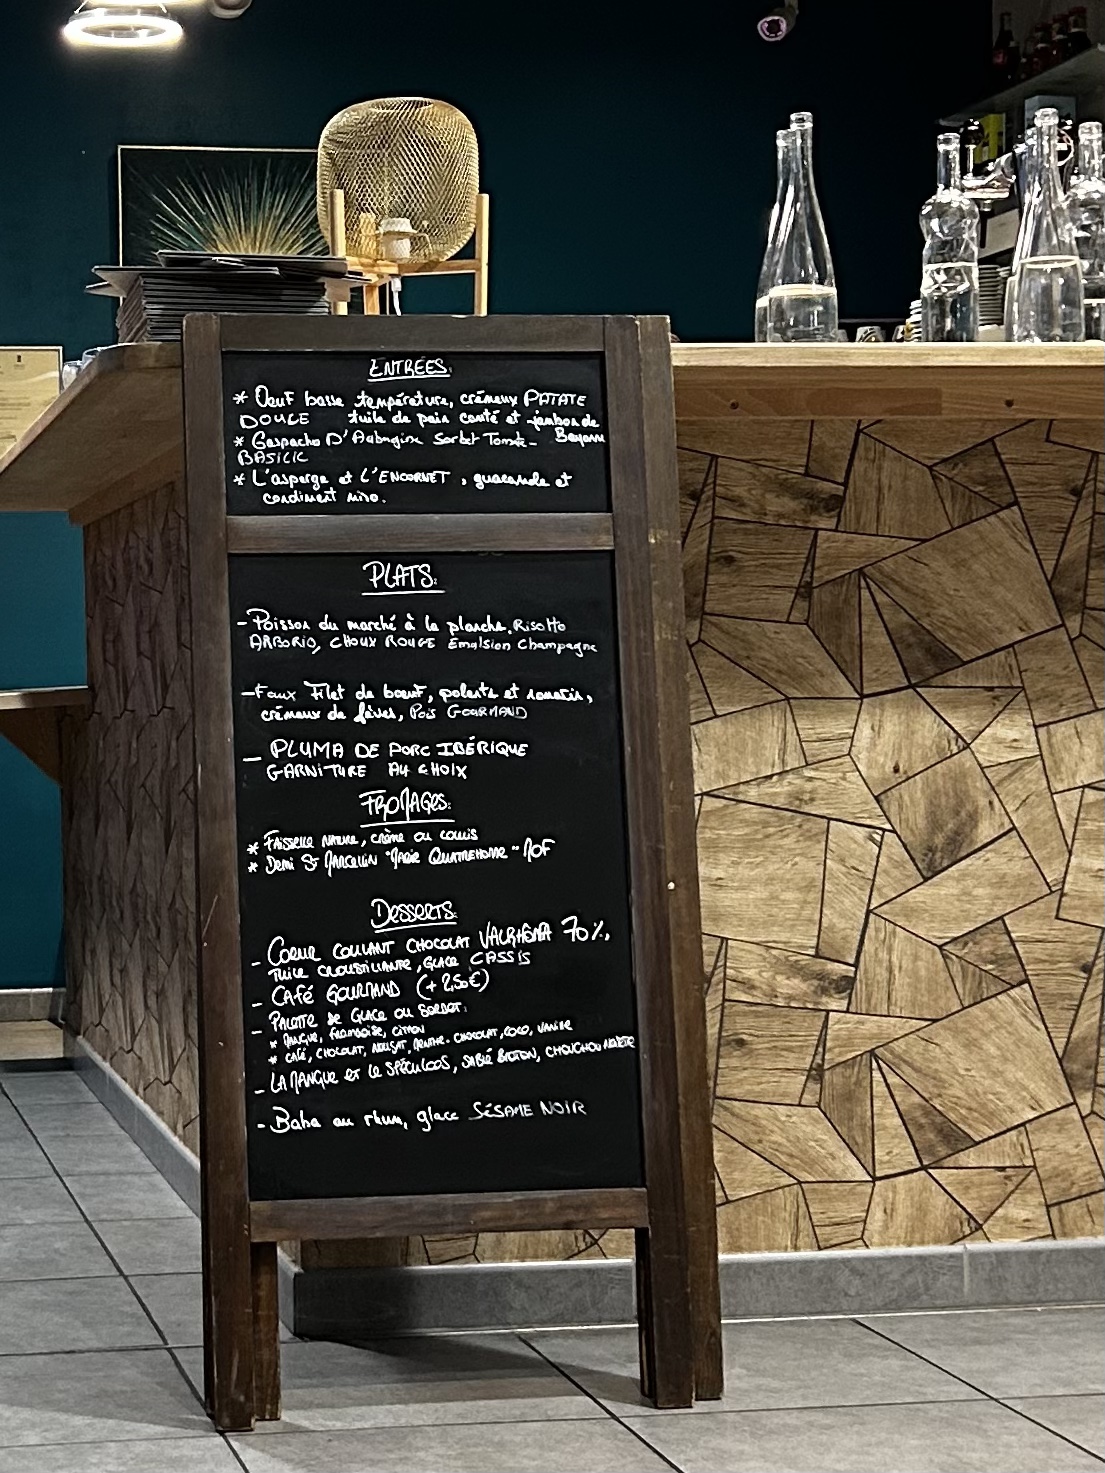 ENTRÉES:
* Oeuf basse température, crémeux PATATE
DOUCE tuile de pain comté et jambon de
Bayonne
* Gaspacho D'Aubergine Sorbet Tomate-
BASILIC
* L'asperge et L'ENCORNET, guacamole et
condiment miso.
PLATS:
- Poisson du marché à la plancha, Risotto
ARBORIO, CHOUX ROUGE Emulsion Champagne
- Faux Filet de boeuf, polenta et romarin,
crémeux de fèves, Pois GOURMAND
- PLUMA DE PORC IBÉRIQUE
GARNITURE AU CHOIX
FROMAGES:
* FAISSELLE NATURE, CRÈME OU COULIS
* Demi St MARCELLIN "MARIE QUATREHOMME" MOF
DESSERTS:
- COEUR COULANT CHOCOLAT VALRHONA 70%,
TUILE CROUSTILLANTE, GLACE CASSIS
- CAFÉ GOURMAND (+ 2,50€)
- PALETTE DE GLACE OU SORBET:
* MANGUE, FRAMBOISE, CITRON
* CAFÉ, CHOCOLAT, NOUGAT, MENTHE-CHOCOLAT, COCO, VANILLE
- LA MANGUE ET LE SPÉCULOOS, SABLÉ BRETON, CHOUCHOU NOISETTE
- Baba au rhum, glace SÉSAME NOIR